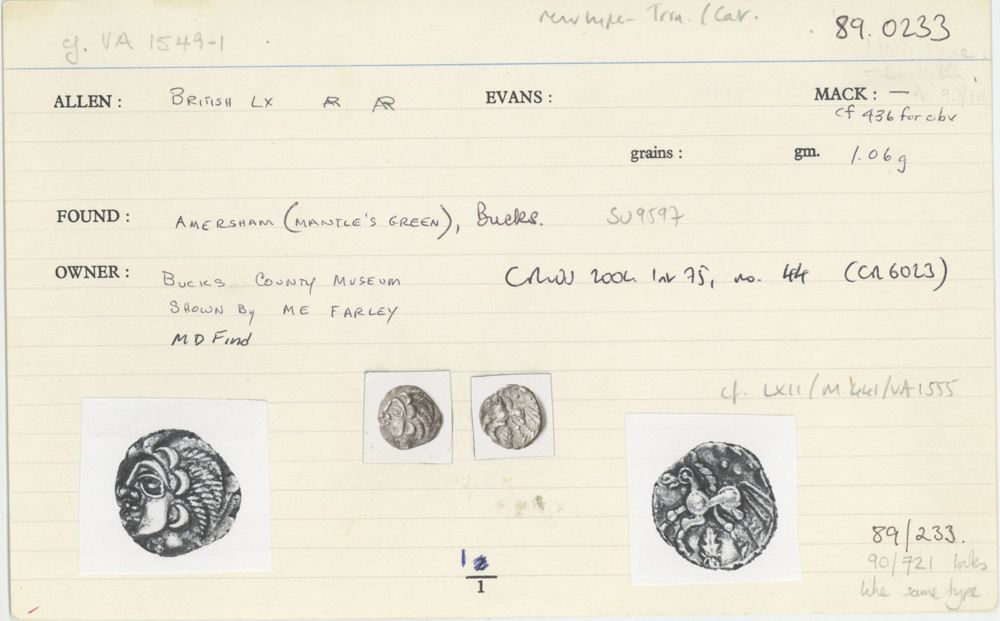 cf. VA 1549-1
new type - Trin. / Cat.
89.0233
ALLEN : BRITISH LX AR AR EVANS : MACK : —
cf 436 for obv
grains : gm. 1.06g
FOUND : AMERSHAM (MANTLE'S GREEN), Bucks. SU9597
OWNER : BUCKS COUNTY MUSEUM
SHOWN By ME FARLEY
MD Find
no. 44 (CR 6023)
cf. LXII / M.441/VA1555
89/233.
90/721 looks
like same type
1
1